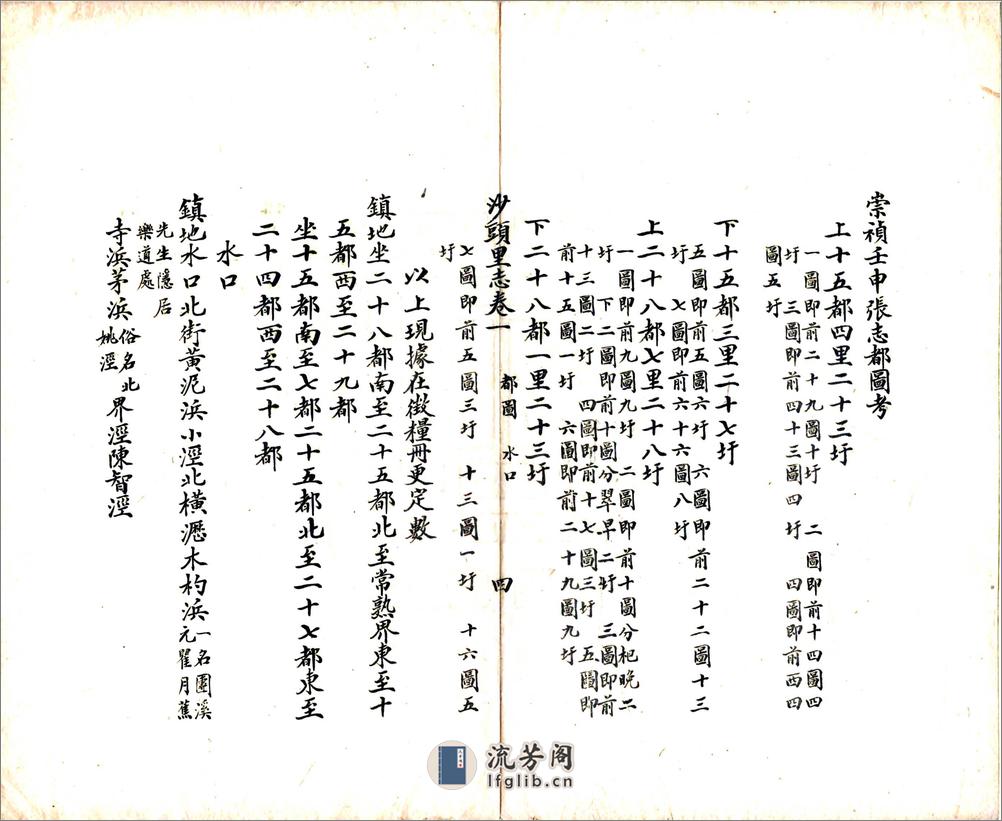 崇禎壬申張志都圖考
上十五都四里二十三圩
一圖即前二十九圖十圩 二圖即前十四圖四
圩 三圖即前四十三圖四圩 四圖即前西四
圖五圩
下十五都三里二十七圩
五圖即前五圖六圩 六圖即前二十二圖十三
圩 七圖即前六十六圖八圩
上二十八都七里二十八圩
一圖即前九圖九圩 二圖即前十圖分杞晚二
圩 下二圖即前十圖分翠早二圩 三圖即前
十三圖二圩 四圖即前十七圖三圩 五圖即
前十五圖一圩 六圖即前二十九圖九圩
下二十八都一里二十三圩
沙頭里志卷一 都圖 水口 四
七圖即前五圖三圩 十三圖一圩 十六圖五
圩
以上現據在徵糧冊更定數
鎮地坐二十八都南至二十五都北至常熟界東至十
五都西至二十九都
坐十五都南至七都二十五都北至二十七都東至
二十四都西至二十八都
水口
鎮地水口北街黃泥浜小涇北橫瀝木杓浜一名園溪
元瞿月蕉
先生隱居
樂道處
寺浜茅浜俗名北
姚涇界涇陳智涇